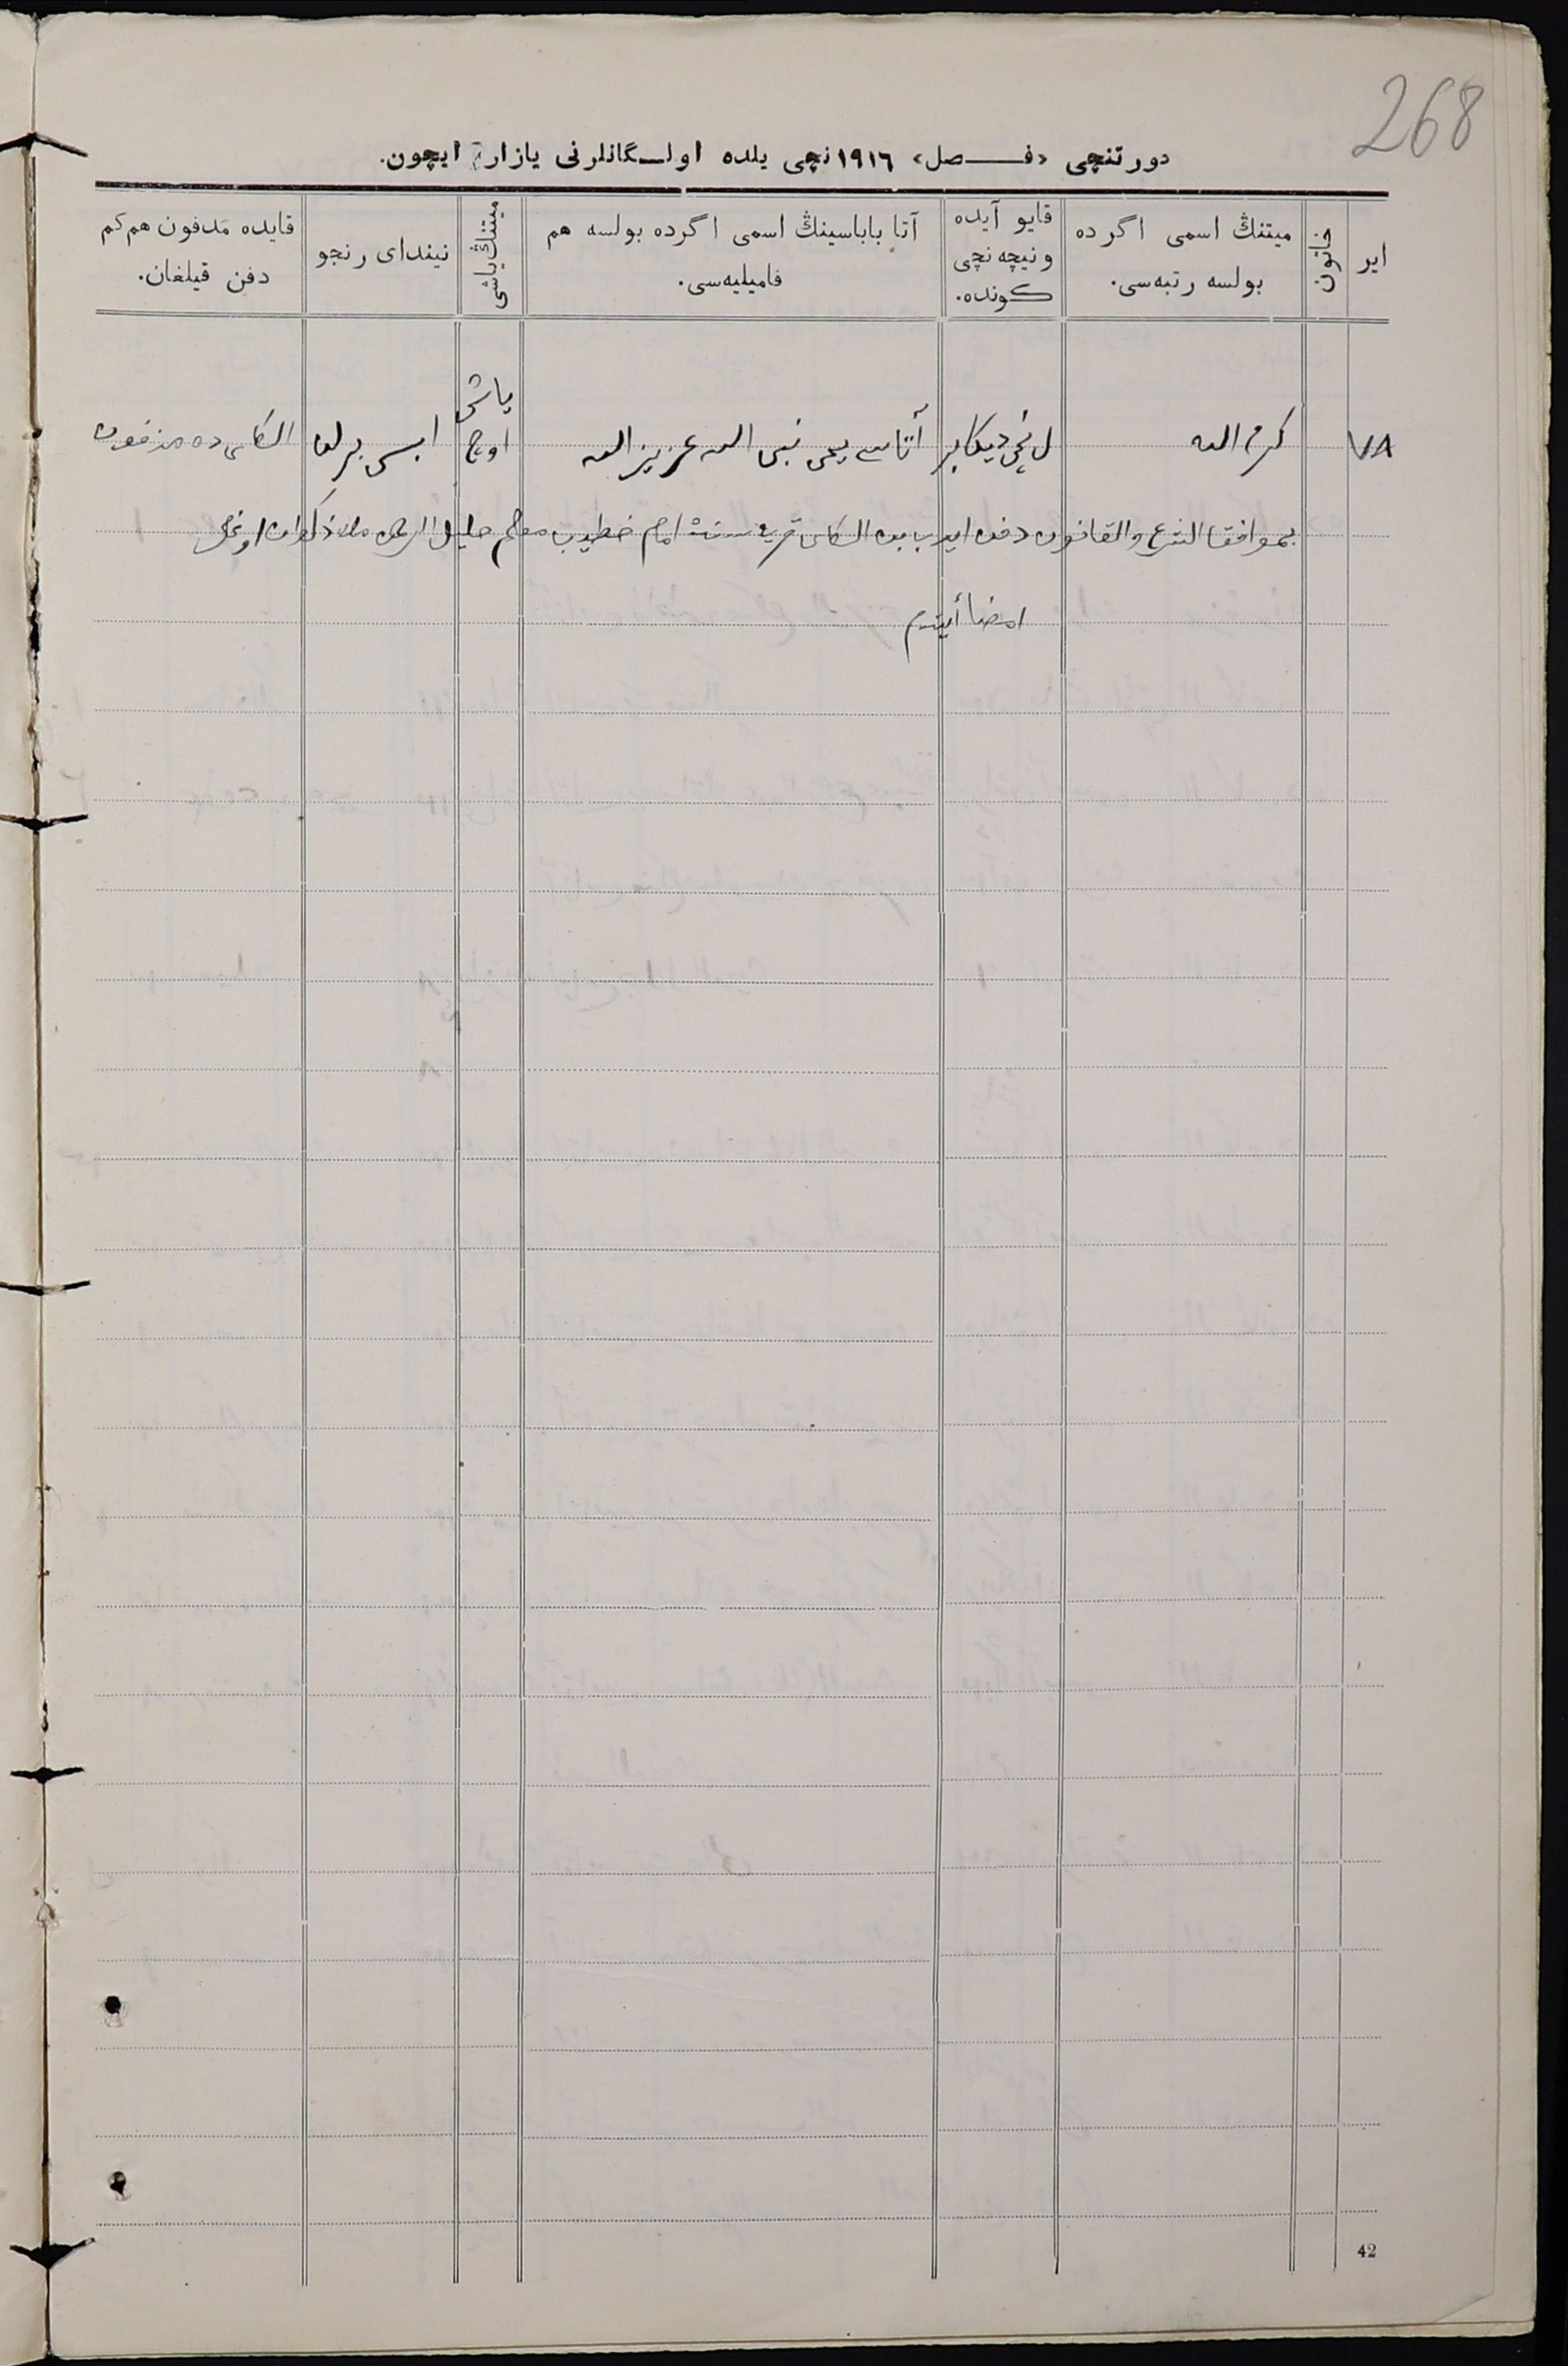 268
دورتنچی «فـــصل» ١٩١٦نچی یلده اولـــگانلرنی یازار ایچون.
ایر
خاتون
میتنڭ اسمی اگرده بولسه رتبه‌سی.
قایو آیده ونیچه‌نچی کونده.
آتا باباسینڭ اسمی اگرده بولسه هم فامیلیه‌سی.
میتنڭ یاشی
نیندای رنجو
قایده مَدفون هم‌کم دفن قیلغان.
٧٨ کرم الله نچی دیکابر آتاسی نبی الله عزیز الله یاشی اوچ ده مدفون
بموافقا الشرع والقانون دفن امام خطیب معلم
امضا ایتدم
42